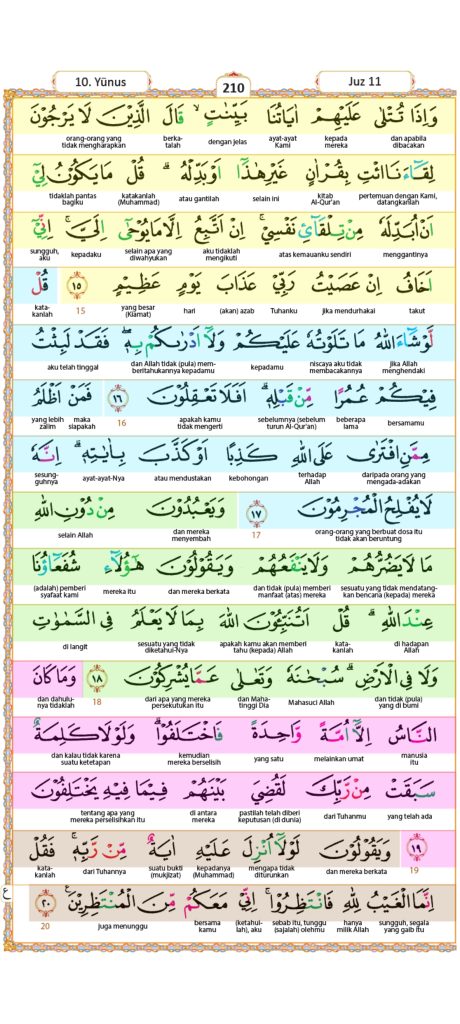 10. Yūnus
210
Juz 11
وَاِذَا تُتْلٰى عَلَيْهِمْ اٰيَاتُنَا بَيِّنٰتٍۙ قَالَ الَّذِيْنَ لَا يَرْجُوْنَ
dan apabila dibacakan kepada mereka ayat-ayat Kami dengan jelas berkata- orang-orang yang tidak mengharapkan
لِقَاۤءَنَا ائْتِ بِقُرْاٰنٍ غَيْرِ هٰذَآ اَوْ بَدِّلْهُۗ قُلْ مَا يَكُوْنُ لِيْٓ
pertemuan dengan Kami, datangkanlah kitab Al-Qur'an selain ini atau gantilah katakanlah (Muhammad) tidaklah pantas bagiku
اَنْ اُبَدِّلَهٗ مِنْ تِلْقَاۤئِ نَفْسِيْۚ اِنْ اَتَّبِعُ اِلَّا مَا يُوْحٰٓى اِلَيَّۚ اِنِّيْٓ
menggantinya atas kemauanku sendiri aku tidaklah mengikuti selain apa yang diwahyukan kepadaku sungguh, aku
اَخَافُ اِنْ عَصَيْتُ رَبِّيْ عَذَابَ يَوْمٍ عَظِيْمٍ ١٥ قُلْ
takut jika mendurhakai Tuhanku (akan) azab hari yang besar (Kiamat) 15 kata-kanlah
لَّوْ شَاۤءَ اللّٰهُ مَا تَلَوْتُهٗ عَلَيْكُمْ وَلَآ اَدْرٰىكُمْ بِهٖۖ فَقَدْ لَبِثْتُ
jika Allah menghendaki niscaya aku tidak membacakannya kepadamu dan Allah tidak (pula) mem-beritahukannya kepadamu aku telah tinggal
فِيْكُمْ عُمُرًا مِّنْ قَبْلِهٖۗ اَفَلَا تَعْقِلُوْنَ ١٦ فَمَنْ اَظْلَمُ
bersamamu beberapa lama sebelumnya (sebelum turun Al-Qur'an) apakah kamu tidak mengerti 16 maka siapakah yang lebih zalim
مِمَّنِ افْتَرٰى عَلَى اللّٰهِ كَذِبًا اَوْ كَذَّبَ بِاٰيٰتِهٖۗ اِنَّهٗ
daripada orang yang mengada-adakan terhadap Allah kebohongan atau mendustakan ayat-ayat-Nya sesung-guhnya
لَا يُفْلِحُ الْمُجْرِمُوْنَ ١٧ وَيَعْبُدُوْنَ مِنْ دُوْنِ اللّٰهِ
orang-orang yang berbuat dosa itu tidak akan beruntung 17 dan mereka menyembah selain Allah
مَا لَا يَضُرُّهُمْ وَلَا يَنْفَعُهُمْ وَيَقُوْلُوْنَ هٰٓؤُلَاۤءِ شُفَعَاۤؤُنَا
sesuatu yang tidak mendatang-kan bencana (kepada) mereka dan tidak (pula) memberi manfaat (atas) mereka dan mereka berkata mereka itu (adalah) pemberi syafaat kami
عِنْدَ اللّٰهِۗ قُلْ اَتُنَبِّـُٔوْنَ اللّٰهَ بِمَا لَا يَعْلَمُ فِى السَّمٰوٰتِ
di hadapan Allah kata-kanlah apakah kamu akan memberi tahu (kepada) Allah sesuatu yang tidak diketahui-Nya di langit
وَلَا فِى الْاَرْضِۗ سُبْحٰنَهٗ وَتَعٰلٰى عَمَّا يُشْرِكُوْنَ ١٨ وَمَا كَانَ
dan tidak (pula) yang di bumi Mahasuci Allah dan Maha-tinggi Dia dari apa yang mereka persekutukan itu 18 dan dahulu-nya tidaklah
النَّاسُ اِلَّآ اُمَّةً وَّاحِدَةً فَاخْتَلَفُوْاۗ وَلَوْلَا كَلِمَةٌ
manusia itu melainkan umat yang satu kemudian mereka berselisih dan kalau tidak karena suatu ketetapan
سَبَقَتْ مِنْ رَّبِّكَ لَقُضِيَ بَيْنَهُمْ فِيْمَا فِيْهِ يَخْتَلِفُوْنَ
yang telah ada dari Tuhanmu pastilah telah diberi keputusan (di dunia) di antara mereka tentang apa yang mereka perselisihkan itu
١٩ وَيَقُوْلُوْنَ لَوْلَآ اُنْزِلَ عَلَيْهِ اٰيَةٌ مِّنْ رَّبِّهٖۚ فَقُلْ
19 dan mereka berkata mengapa tidak diturunkan kepadanya (Muhammad) suatu bukti (mukjizat) dari Tuhannya kata-kanlah
اِنَّمَا الْغَيْبُ لِلّٰهِ فَانْتَظِرُوْاۚ اِنِّيْ مَعَكُمْ مِّنَ الْمُنْتَظِرِيْنَ ٢٠ ع
sungguh, segala yang gaib itu hanya milik Allah sebab itu, tunggu (sajalah) olehmu (ketahui-lah), aku bersama kamu juga menunggu 20